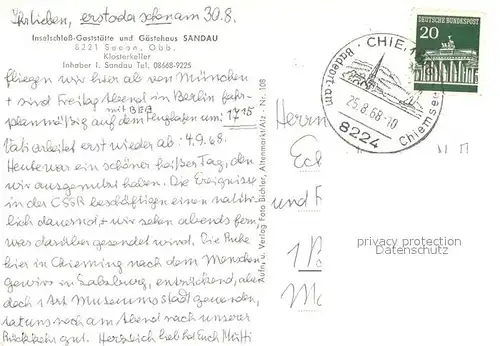 Ihr Lieben, erst oder schon am 30.8.
Inselschloß-Gaststätte und Gästehaus SANDAU
8221 Seeon, Obb.
Klosterkeller
Inhaber I. Sandau Tel. 08668-9225
fliegen wir hier ab von München
+ sind Freitag Abend in Berlin fahr-
mit BEA
planmäßig auf dem Flughafen um 17 15
Vati arbeitet erst wieder ab: 4.9.68.
Heute war ein schöner heißer Tag, den
wir ausgenutzt haben. Die Ereignisse
in der CSSR beschäftigen einen natür-
lich dauernd + wir sehen abends fern
was darüber gesendet wird. Die Ruhe
hier in Chieming nach dem Menschen
gewirr in Salzburg, entzückend, aber
doch 1 Art Museumsstadt geworden,
tat uns noch am Abend nach unserer
Rückkehr gut. Herzlich hab Euch Mutti
Aufn. u. Verlag Foto Bichler, Altenmarkt/Alz - Nr. 108
CHIE
Badeort am Chiemsee
25.8.68-10
8224
DEUTSCHE BUNDESPOST
20
Herrn
und F
1
privacy protection
Datenschutz